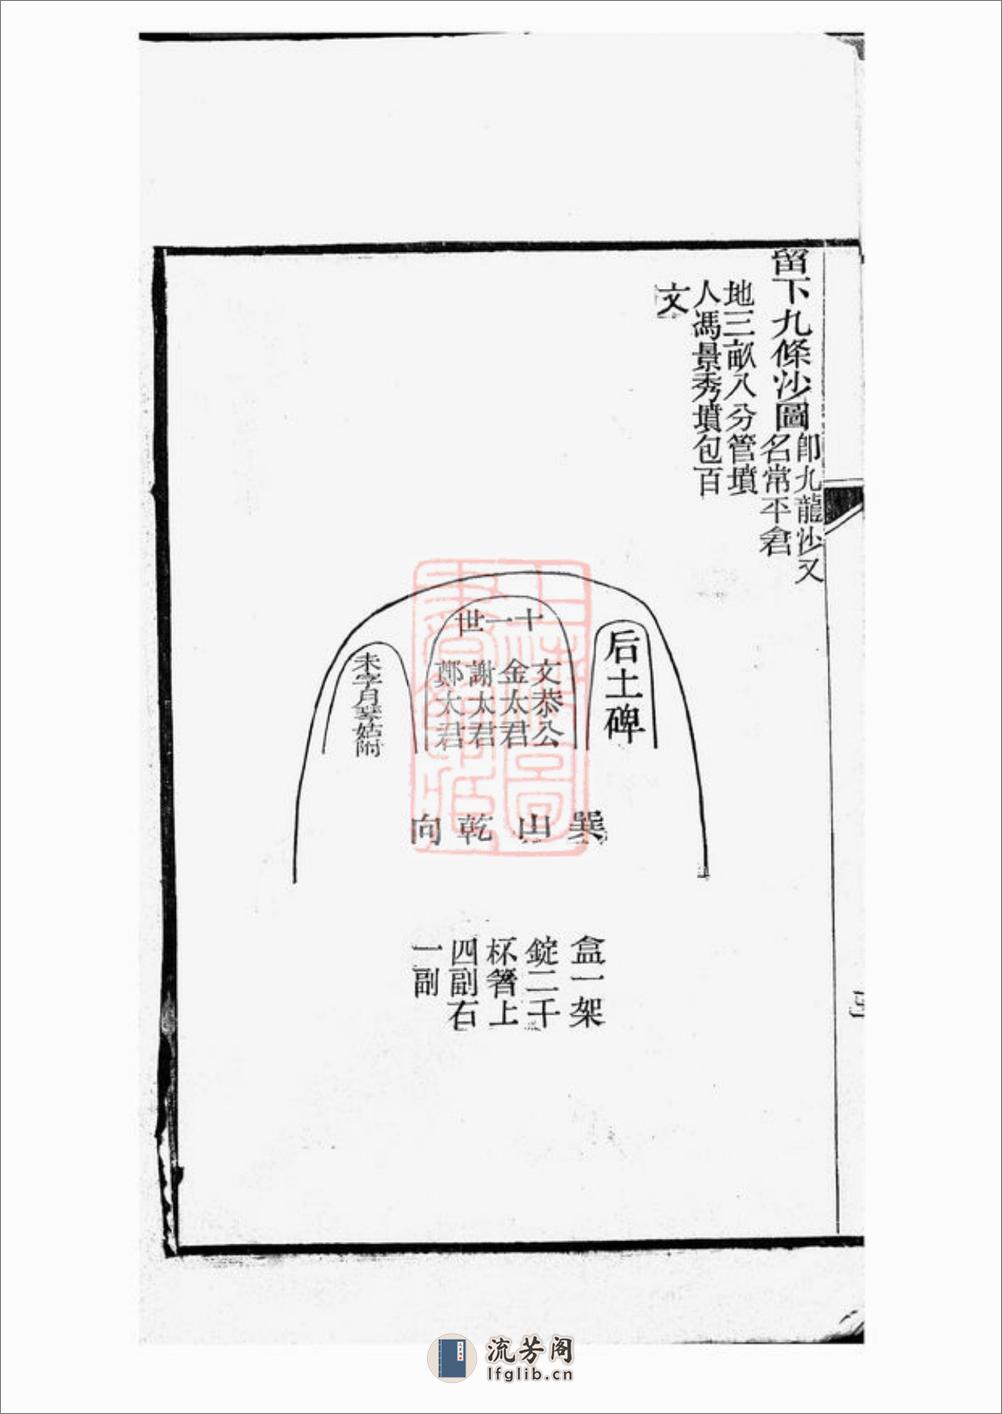 留下九條沙圖
卽九龍沙又
名常平倉
地三畝八分管墳
人馮景秀墳包百
文
后土碑
十一世
文恭公
金太君
謝太君
鄭太君
未字月琴姑附
巽山乾向
盒一架
錠二千
杯箸上
四副右
一副
流芳阁
lfglib.cn